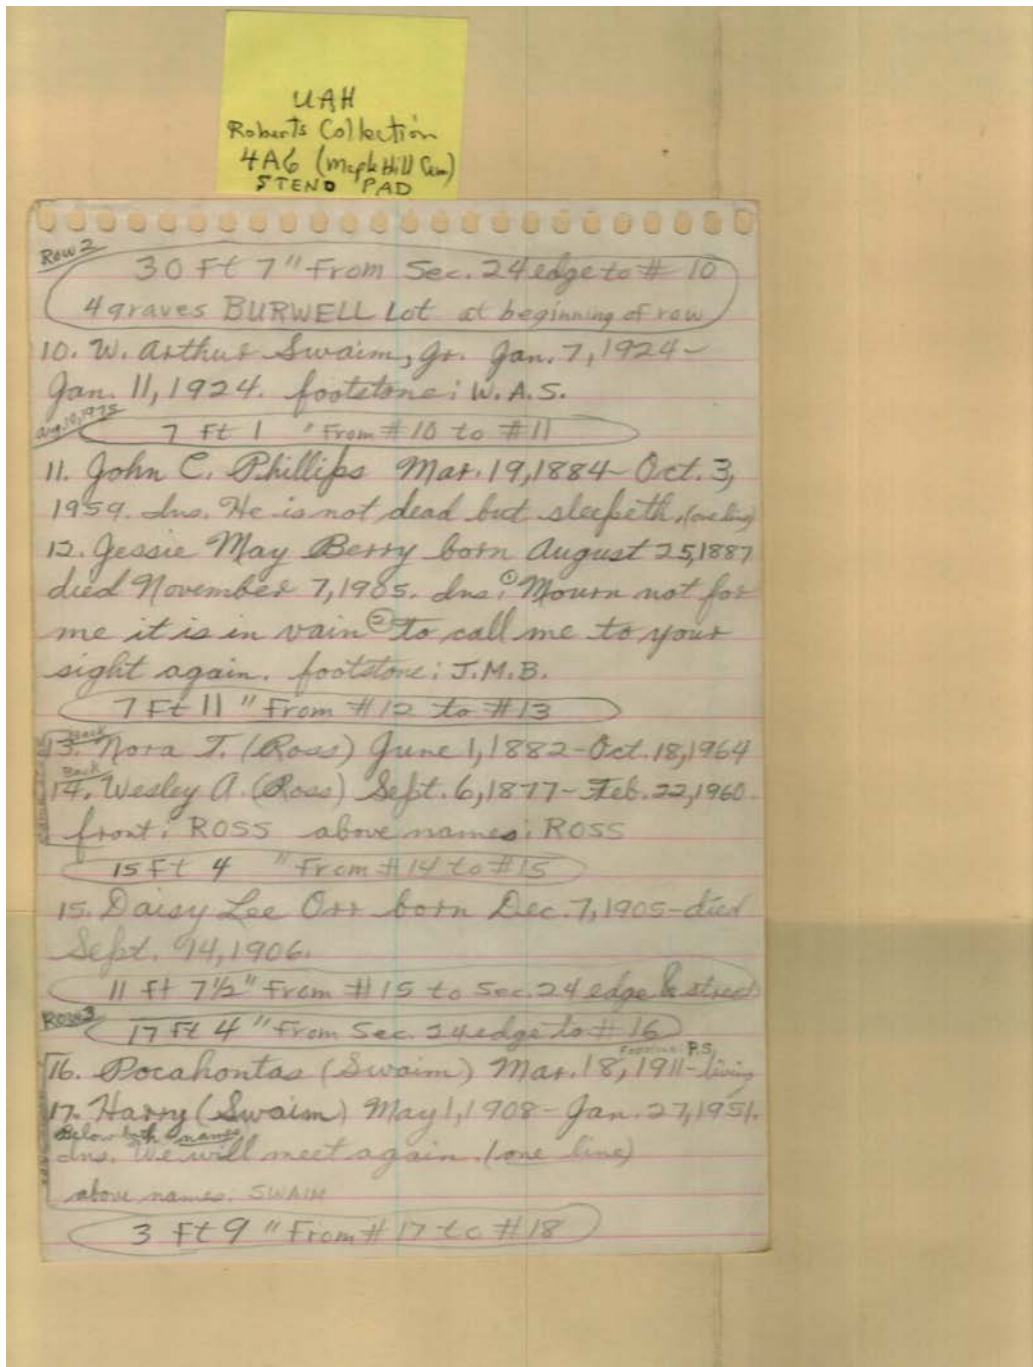 UAH
Roberts Collection
4A6 (Maple Hill Cem)
STENO PAD
Row 2
30 Ft 7" From Sec. 24 edge to # 10
4 graves BURWELL Lot at beginning of row
10. W. Arthur Swaim, Jr. Jan. 7, 1924 -
Jan. 11, 1924. footstone: W.A.S.
Aug. 10, 1975
7 Ft 1 " From # 10 to # 11
11. John C. Phillips Mar. 19, 1884 - Oct. 3,
1959. Ins. He is not dead but sleepeth. (one line)
12. Jessie May Berry born August 25, 1887
died November 7, 1905. Ins: ① Mourn not for
me it is in vain ② To call me to your
sight again. footstone: J.M.B.
7 Ft 11 " From # 12 to # 13
Back
13. Nora T. (Ross) June 1, 1882 - Oct. 18, 1964
Back
14. Wesley A. (Ross) Sept. 6, 1877 - Feb. 22, 1960.
front: ROSS above names: ROSS
15 Ft 4 " From # 14 to # 15
15. Daisy Lee Orr born Dec. 7, 1905 - died
Sept. 14, 1906.
11 Ft 7 1/2" From # 15 to Sec. 24 edge & street
Row 3
17 Ft 4 " From Sec. 24 edge to # 16
footstone: P.S.
16. Pocahontas (Swaim) Mar. 18, 1911 - living
17. Harry (Swaim) May 1, 1908 - Jan. 27, 1951.
Below both names
Ins. We will meet again. (one line)
above names. SWAIM
3 Ft 9 " From # 17 to # 18